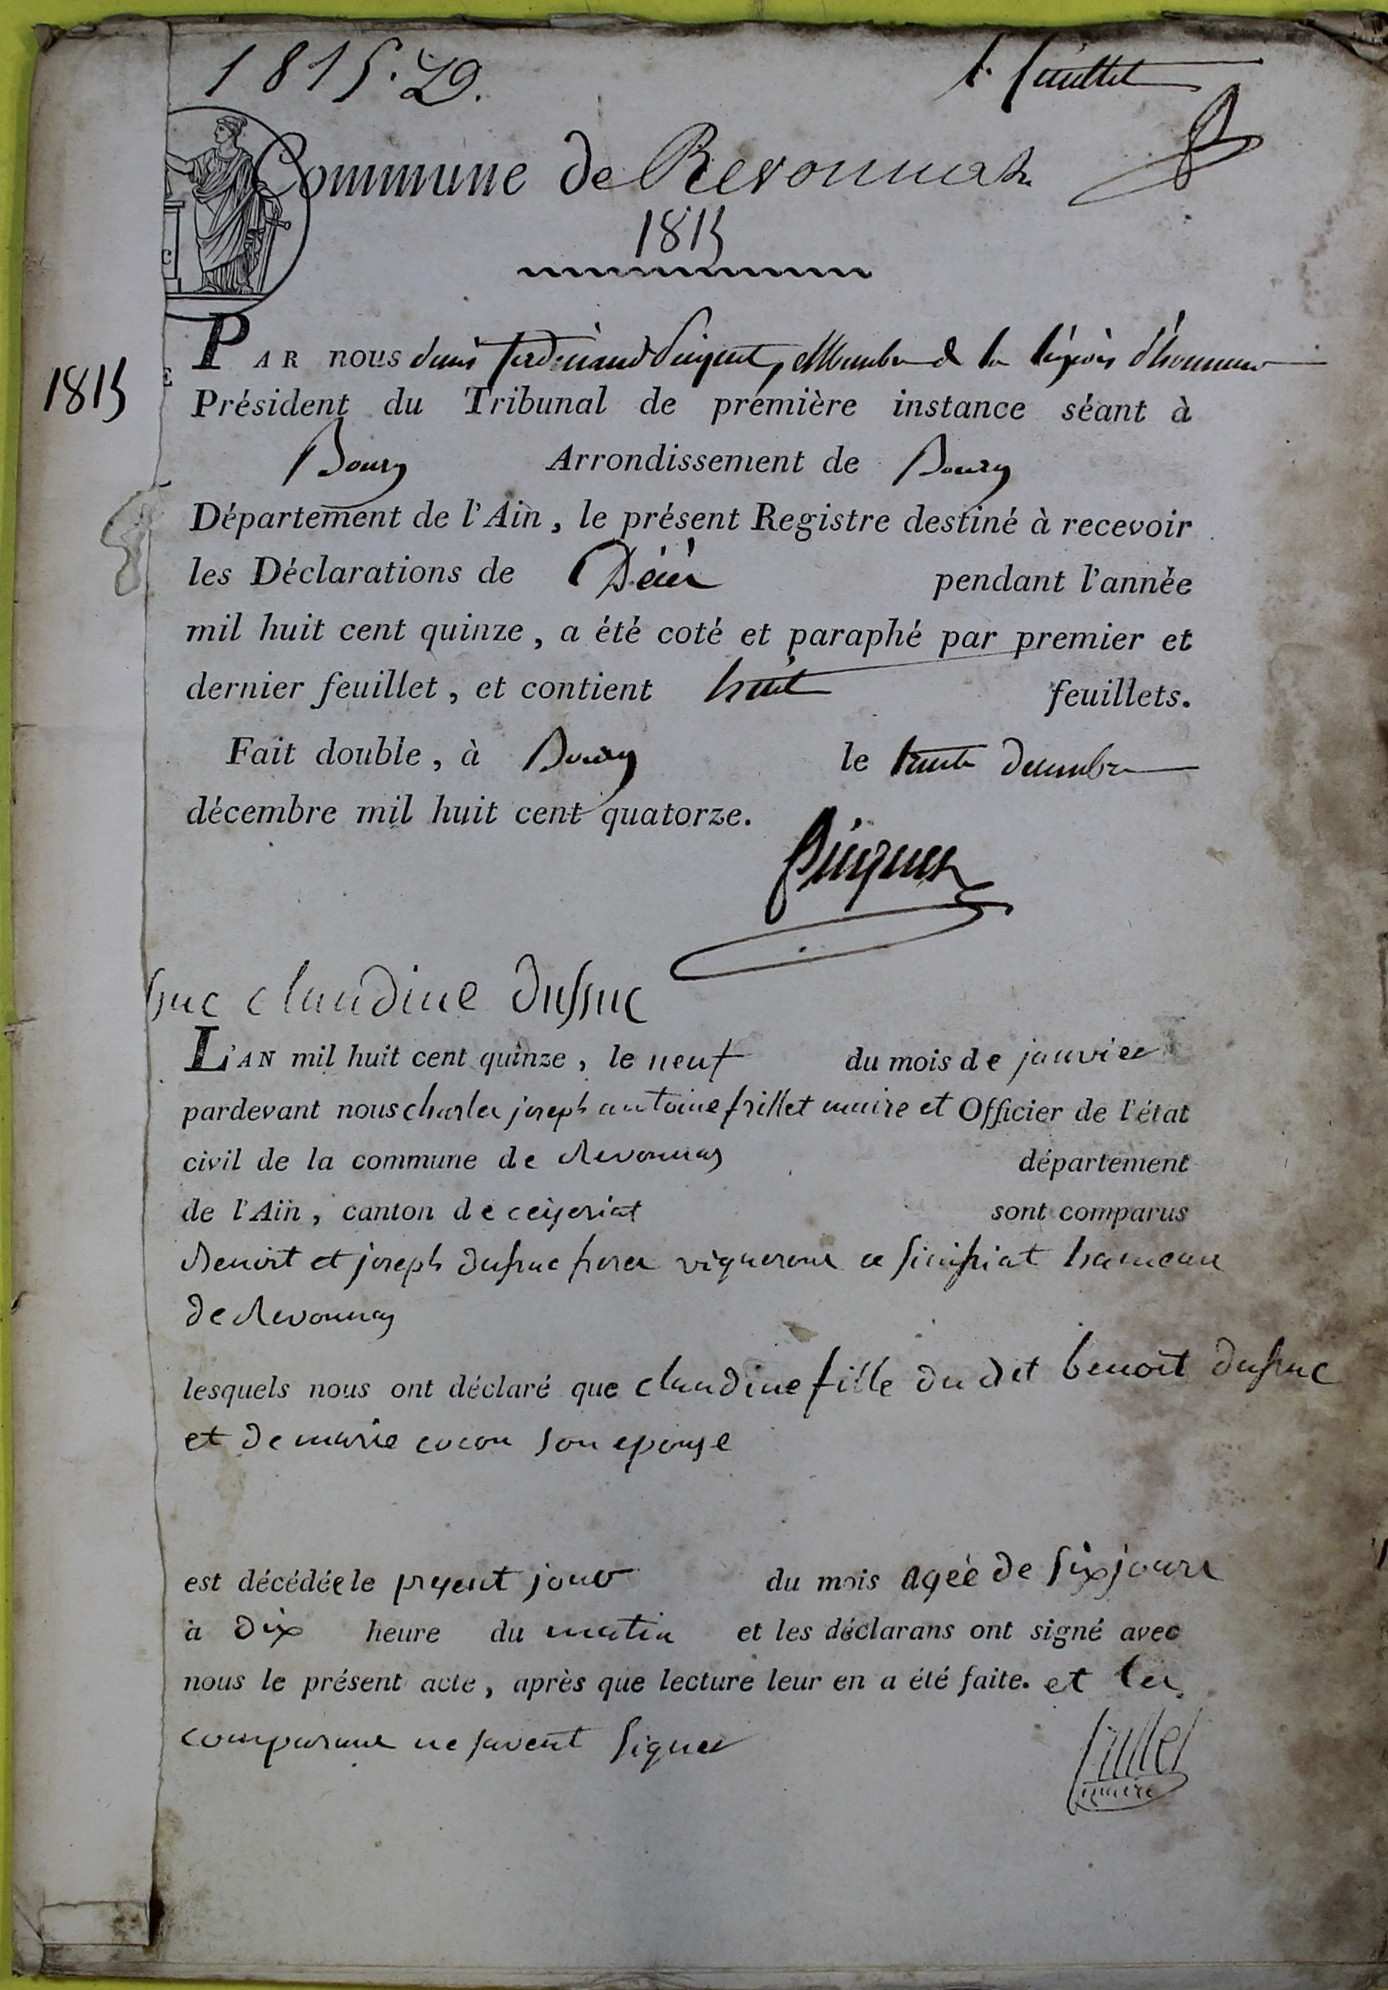 1815. D.
1. feuillet
Commune de Revonnas
1815
1815
E
C
PAR nous denis ferdinand Puiguet, Membre de la légion d'honneur
Président du Tribunal de première instance séant à
Bourg Arrondissement de Bourg
Département de l'Ain, le présent Registre destiné à recevoir
les Déclarations de Décès pendant l'année
mil huit cent quinze, a été coté et paraphé par premier et
dernier feuillet, et contient huit feuillets.
Fait double, à Bourg le trente decembre
décembre mil huit cent quatorze.
suc claudine dussuc
L'AN mil huit cent quinze, le neuf du mois de janvier
pardevant nous charles joseph antoine frillet maire et Officier de l'état
civil de la commune de Revonnas département
de l'Ain, canton de ceyzeriat sont comparus
Benoit et joseph dussuc freres vignerons a hameau
de Revonnas
lesquels nous ont déclaré que claudine fille du dit benoit dussuc
et de marie cocon son epouse
est décédée le present jour du mois agée de six jours
à dix heure du matin et les déclarans ont signé avec
nous le présent acte, après que lecture leur en a été faite. et les
comparans ne savent signer
frillet
maire